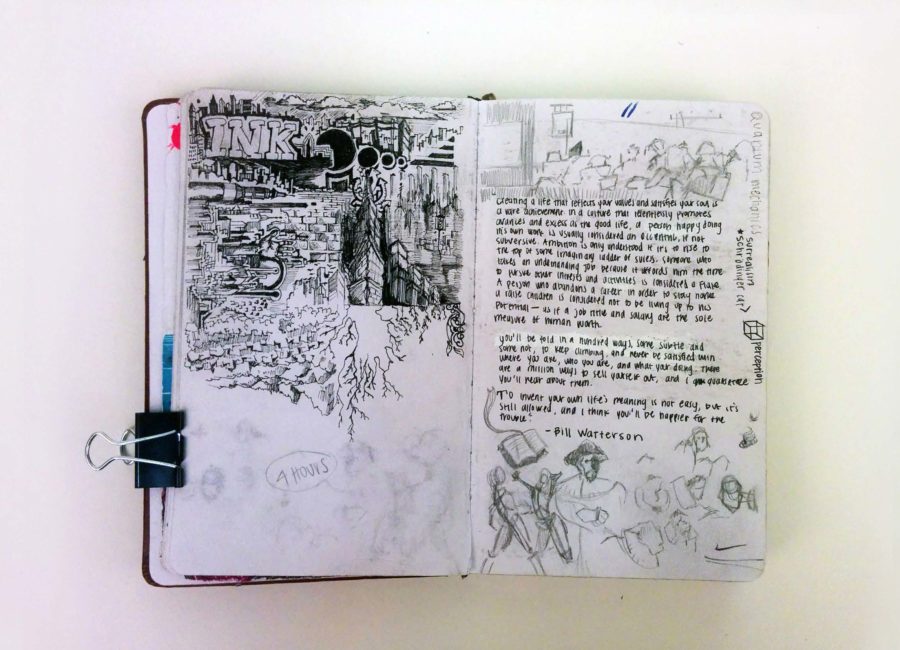 INK
4 HOURS
Creating a life that reflects your values and satisfies your soul is
a rare achievement in a culture that relentlessly promotes
avarices and excess as the good life, a person happy doing
his own work is usually considered an eccentric, if not
subversive. Ambition is only understood if it's to rise to
the top of some imaginary ladder of success. Someone who
takes an undemanding job because it affords him the time
to pursue other interests and activities is considered a flake.
A person who abandons a career in order to stay home
& raise children is considered not to be living up to his
potential — as if a job title and salary are the sole
measure of human worth.
you'll be told in a hundred ways, some subtle and
some not, to keep climbing, and never be satisfied with
where you are, who you are, and what your doing. There
are a million ways to sell yourself out, and i guarantee
you'll hear about them.
To invent your own life's meaning is not easy, but it's
still allowed, and I think you'll be happier for the
trouble."
- Bill Watterson
Quantum mechanics
surrealism
*schrodinger cat>
perception